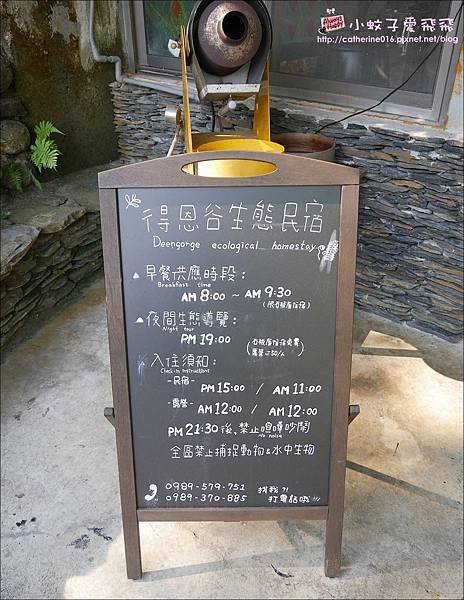 小蚊子愛飛飛
http://catherine016.pixnet.net/blog
得恩谷生態民宿
Deengorge ecological homestay
早餐供應時段:
Breakfast time
AM 8:00 ~ AM 9:30
(限石板屋住宿)
夜間生態導覽:
Night tour
PM 19:00
(石板屋住宿免費
露營一位50/人)
入住須知:
Check-in instructions
-民宿- PM 15:00 / AM 11:00
-露營- AM 12:00 / AM 12:00
PM 21:30 後、禁止喧嘩吵鬧
No noise
全區禁止捕捉動物&水中生物
0989-579-751
0989-370-885
找我?!
打電話哦!!!